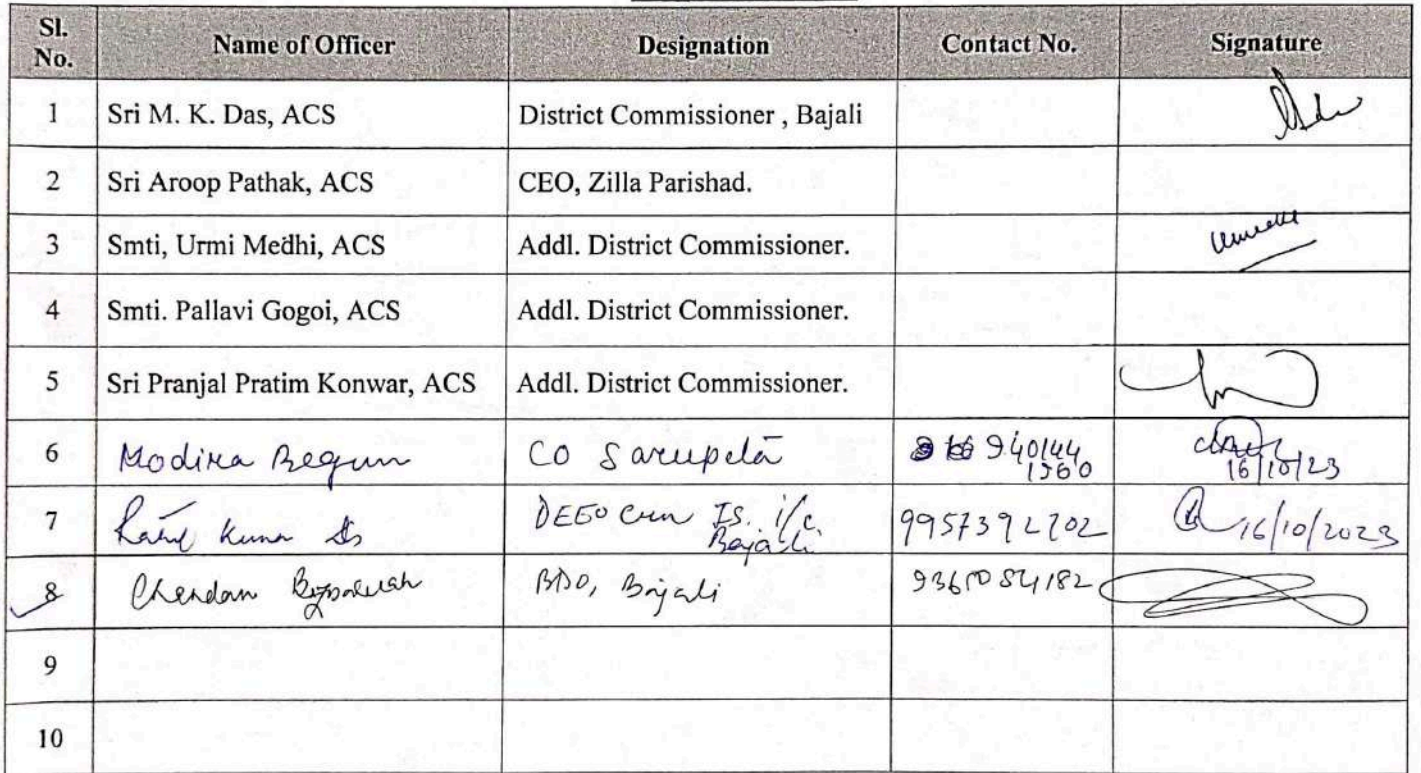 Sl. No. Name of Officer Designation Contact No. Signature
1 Sri M. K. Das, ACS District Commissioner , Bajali
2 Sri Aroop Pathak, ACS CEO, Zilla Parishad.
3 Smti, Urmi Medhi, ACS Addl. District Commissioner.
4 Smti. Pallavi Gogoi, ACS Addl. District Commissioner.
5 Sri Pranjal Pratim Konwar, ACS Addl. District Commissioner.
6 Modira Begum CO Sarupeta 940144
1360 16/10/23
7 Kumar Das DEEO cum IS. i/c 9957392702 16/10/2023
Bajali
8 Chandan BDO, Bajali
9
10